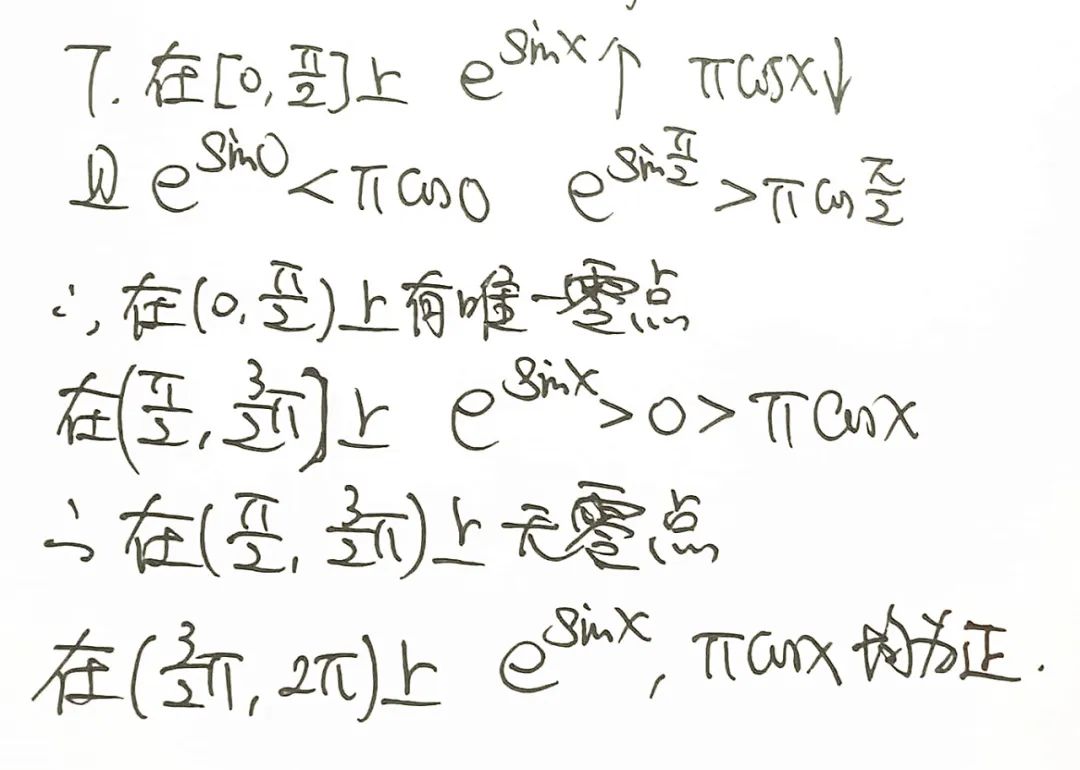 7. 在[0, π/2]上 e^sinx↑ πcosx↓
且 e^sin0 < πcos0 e^sin π/2 > πcos π/2
∴ 在(0, π/2)上有唯一零点
在(π/2, 3/2π]上 e^sinx > 0 > πcosx
∴ 在(π/2, 3/2π)上无零点
在(3/2π, 2π)上 e^sinx, πcosx 均为正.